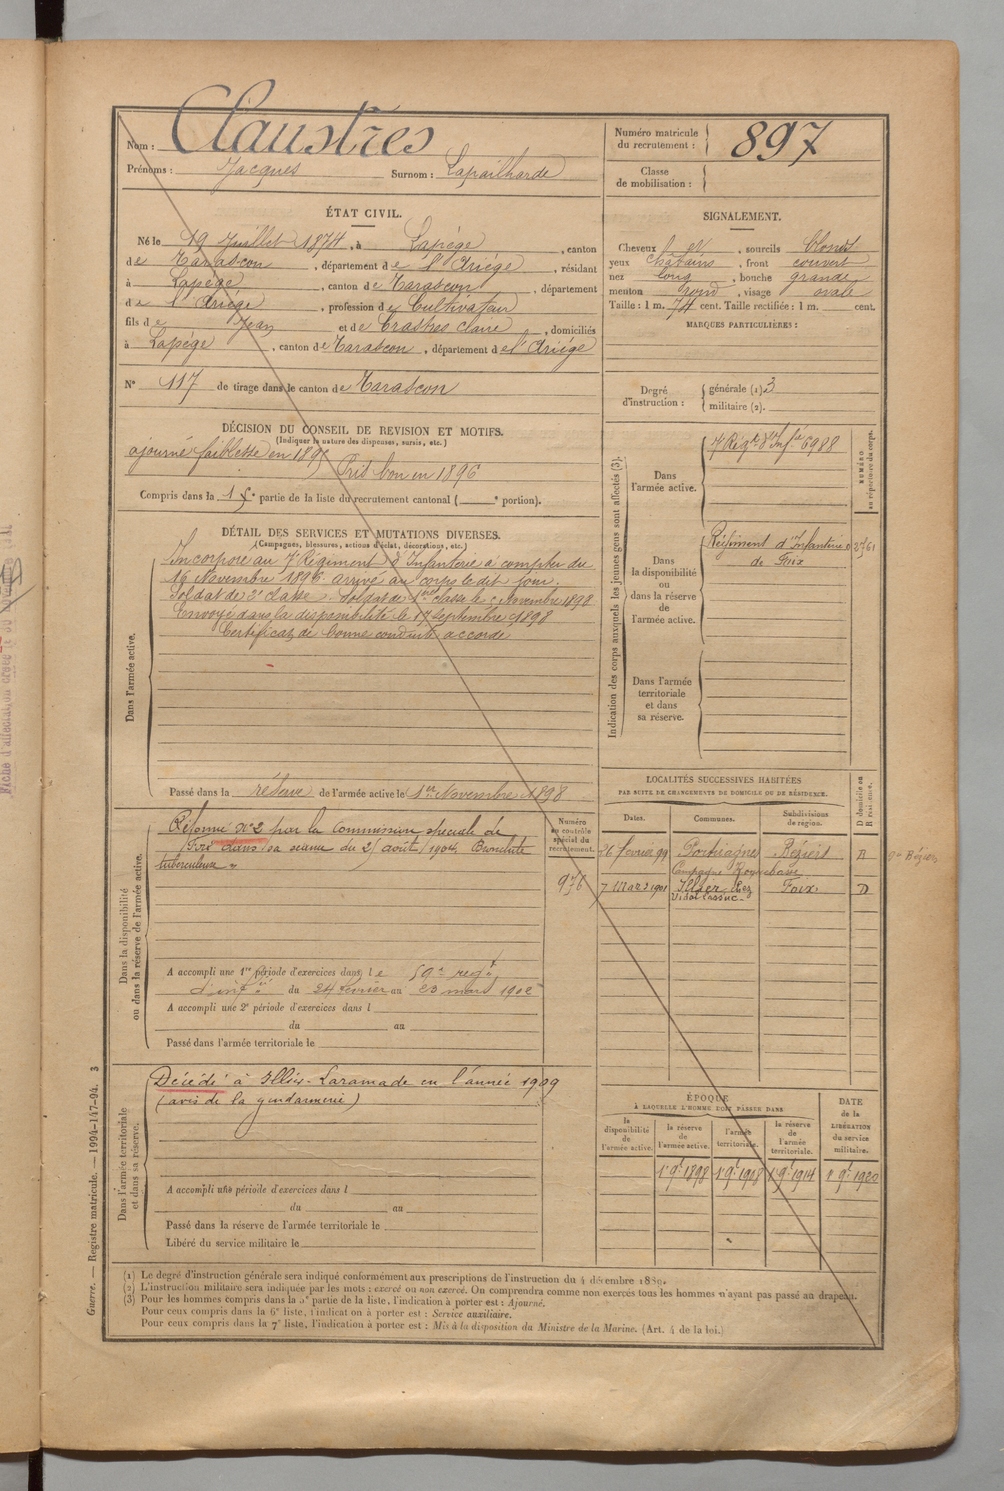 Nom : Claustres
Prénoms : Jacques Surnom : Lapailharde
Numéro matricule du recrutement : 897
Classe de mobilisation :
ÉTAT CIVIL.
Né le 19 Juillet 1874, à Lapège, canton
de Tarascon, département de l'Ariége, résidant
à Lapège, canton de Tarascon, département
de l'Ariége, profession de Cultivateur
fils de Jean et de Crastres Claire, domiciliés
à Lapége, canton de Tarascon, département de l'Ariége
N° 117 de tirage dans le canton de Tarascon
SIGNALEMENT.
Cheveux, sourcils blonds
yeux châtains, front couvert
nez long, bouche grande
menton rond, visage ovale
Taille : 1 m. 74 cent. Taille rectifiée : 1 m. cent.
MARQUES PARTICULIÈRES :
Degré d'instruction : générale (1) 3
militaire (2).
DÉCISION DU CONSEIL DE REVISION ET MOTIFS.
(Indiquer la nature des dispenses, sursis, etc.)
ajourné faiblesse en 1895
Pris bon en 1896
Compris dans la 1e partie de la liste du recrutement cantonal ( e portion).
DÉTAIL DES SERVICES ET MUTATIONS DIVERSES.
(Campagnes, blessures, actions d'éclat, décorations, etc.)
Dans l'armée active.
Incorporé au 7e Régiment d'Infanterie à compter du
16 Novembre 1896. arrivé au corps le dit jour.
Soldat de 2e classe. Soldat de 1ère classe le Novembre 1898
Envoyé dans la disponibilité le 17 Septembre 1898
Certificat de bonne conduite accordé
Passé dans la réserve de l'armée active le 1er Novembre 1898
Indication des corps auxquels les jeunes gens sont affectés (3).
NUMÉRO au répertoire du corps.
Dans l'armée active.
7e Régt d'Infie 6988
Dans la disponibilité ou dans la réserve de l'armée active.
Régiment d'Infanterie
de Foix
Dans l'armée territoriale et dans sa réserve.
Dans la disponibilité ou dans la réserve de l'armée active.
Réformé n°2 par la Commission spéciale de
Foix dans sa séance du 2 août 1904 Bronchite
tuberculeuse
Numéro au contrôle spécial du recrutement.
976
A accompli une 1re période d'exercices dans le 59e regt
d'infie du 24 février au 23 mars 1902
A accompli une 2e période d'exercices dans l
du au
Passé dans l'armée territoriale le
LOCALITÉS SUCCESSIVES HABITÉES
PAR SUITE DE CHANGEMENTS DE DOMICILE OU DE RÉSIDENCE.
Dates. Communes. Subdivisions de région. D domicile ou R résidence.
26 février 99 Portiragnes Béziers R
Campagne
7 Mars 1901 Illier chez Foix. D
Vidal
Dans l'armée territoriale et dans sa réserve.
Décédé à Illier-Laramade en l'année 1909
(avis de la gendarmerie)
A accompli une période d'exercices dans l
du au
Passé dans la réserve de l'armée territoriale le
Libéré du service militaire le
ÉPOQUE
À LAQUELLE L'HOMME DOIT PASSER DANS
la disponibilité de l'armée active. la réserve de l'armée active. l'armée territoriale. la réserve de l'armée territoriale. DATE de la LIBÉRATION du service militaire.
1 9e 1898 1 9e 1908 1 9e 1914 1 9e 1920
(1) Le degré d'instruction générale sera indiqué conformément aux prescriptions de l'instruction du 4 décembre 1889.
(2) L'instruction militaire sera indiquée par les mots : exercé ou non exercé. On comprendra comme non exercés tous les hommes n'ayant pas passé au drapeau.
(3) Pour les hommes compris dans la 5e partie de la liste, l'indication à porter est : Ajourné.
Pour ceux compris dans la 6e liste, l'indication à porter est : Service auxiliaire.
Pour ceux compris dans la 7e liste, l'indication à porter est : Mis à la disposition du Ministre de la Marine. (Art. 4 de la loi.)
Guerre. — Registre matricule. — 1994-147-94. 3